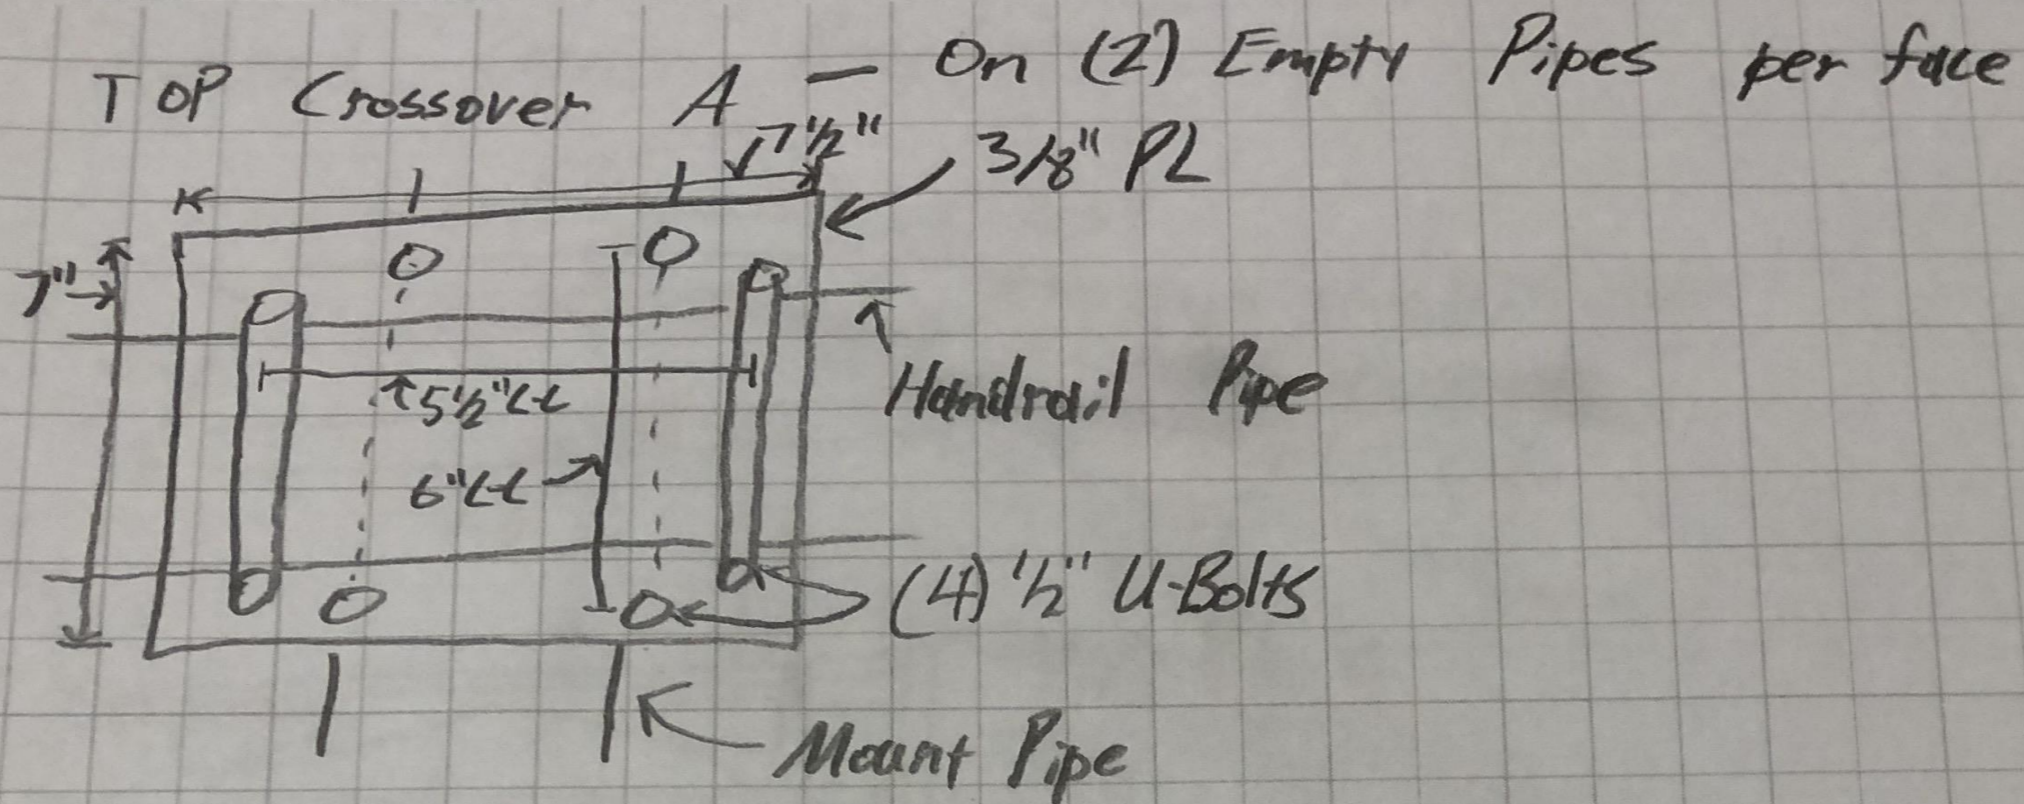 TOP Crossover A — On (2) Empty Pipes per face
7 1/2"
3/8" PL
7"
5 1/2" C-C
Handrail Pipe
6" C-C
(4) 1/2" U-Bolts
Mount Pipe